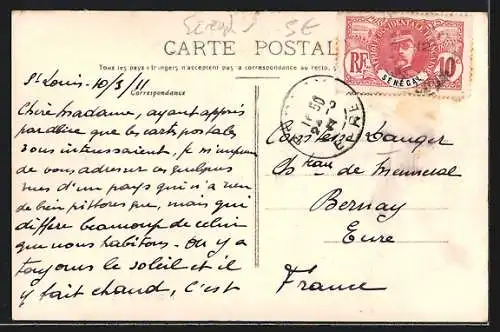 Sénégal
5€
CARTE POSTALE
Tous les pays étrangers n'acceptent pas la correspondance au recto
Correspondance
AFRIQUE OCCIDENTALE FRANÇAISE
RF
10c
SÉNÉGAL
St Louis - 10/3/11
Chère Madame, ayant appris
par Hélène que les cartes postales
vous intéressaient, je m'empresse
de vous adresser ces quelques
vues d'un pays qui n'a rien
de bien pittoresque, mais qui
diffère beaucoup de celui
que nous habitons - On y a
toujours le soleil et il
y fait chaud, c'est
EURE
Danger
Chau de Menneval
Bernay
Eure
France